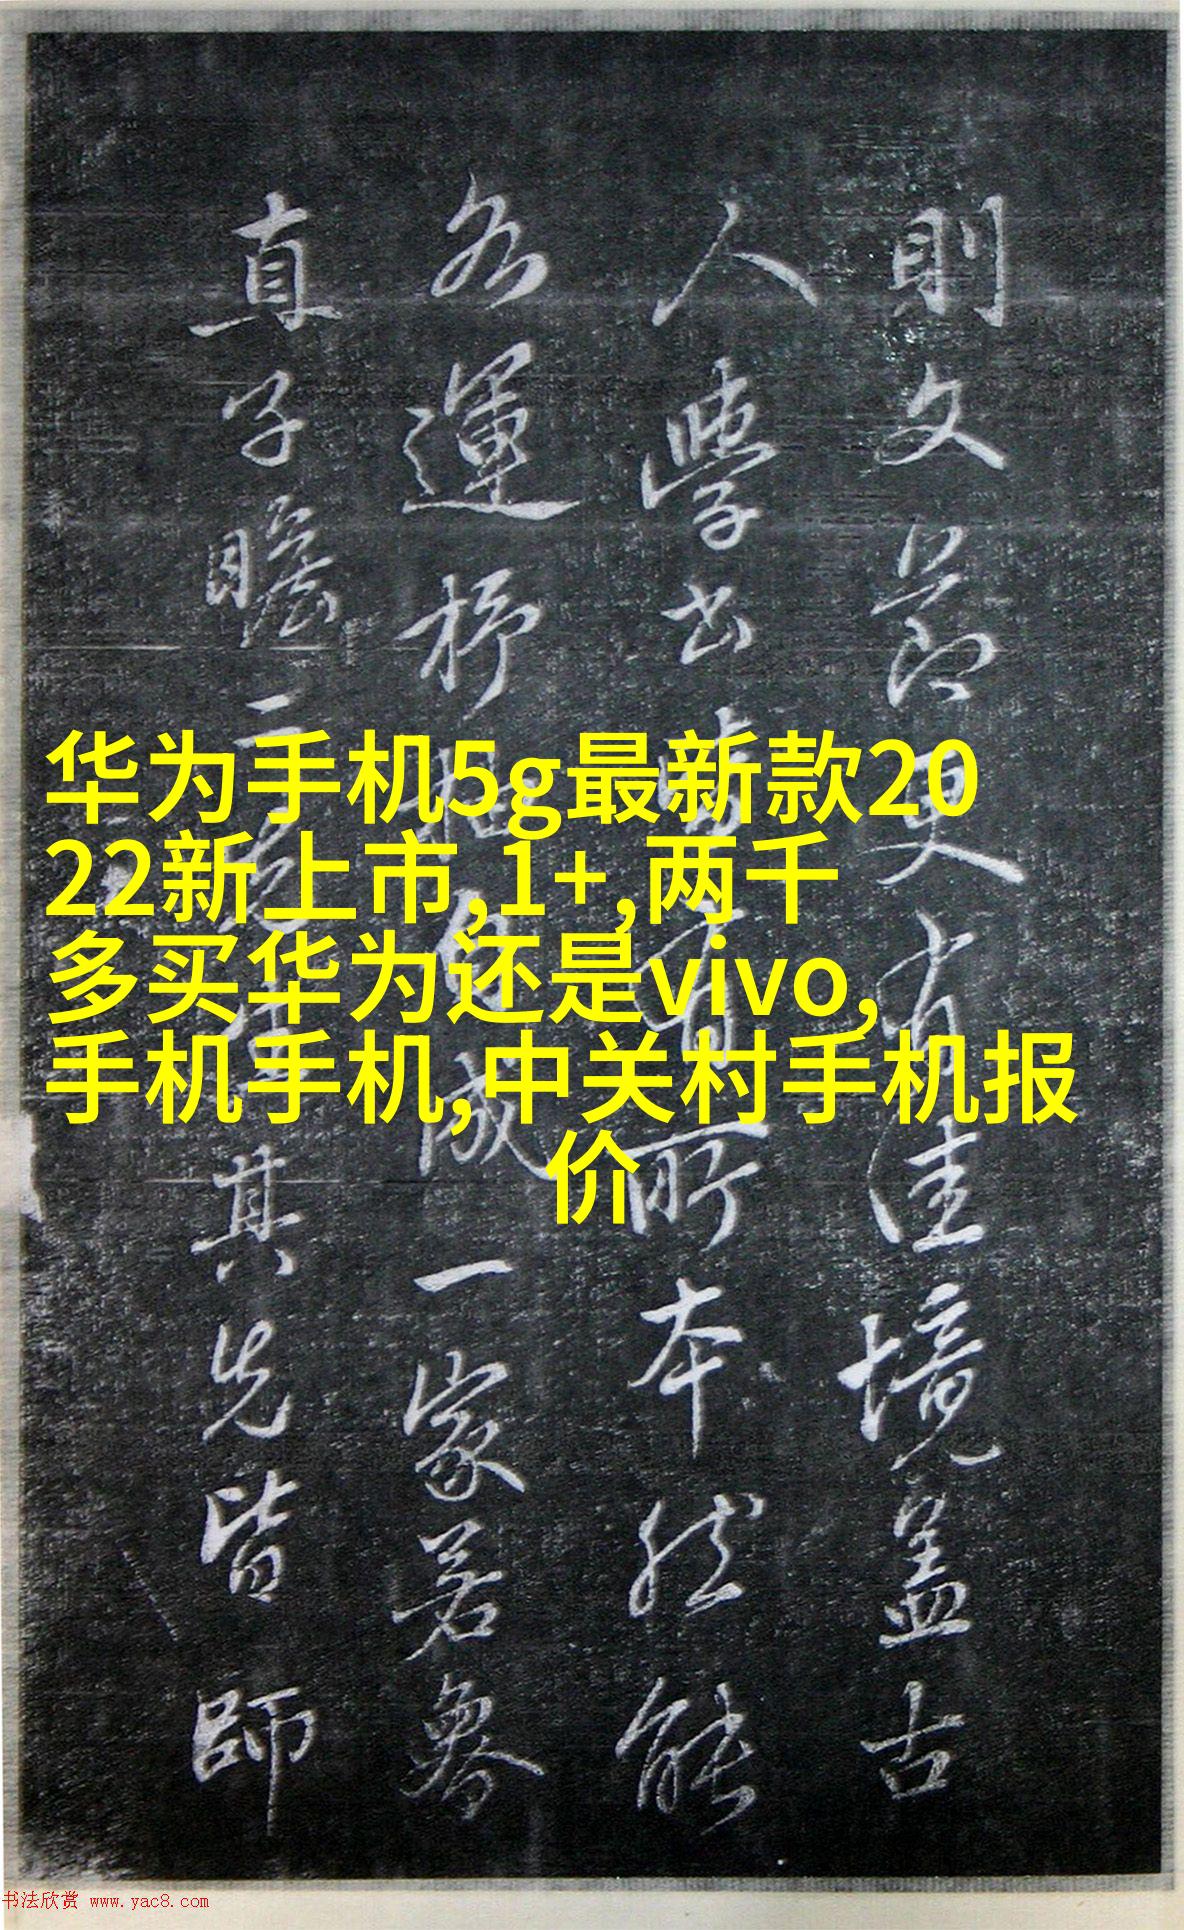 华为手机5g最新款20
22新上市,1+,两千
多买华为还是vivo,
手机手机,中关村手机报
价
則文節有佳境盖古
人學書有所本然能
各運杼自成一家若魯
直子瞻二其先皆師
书法欣赏 www.yac8.com